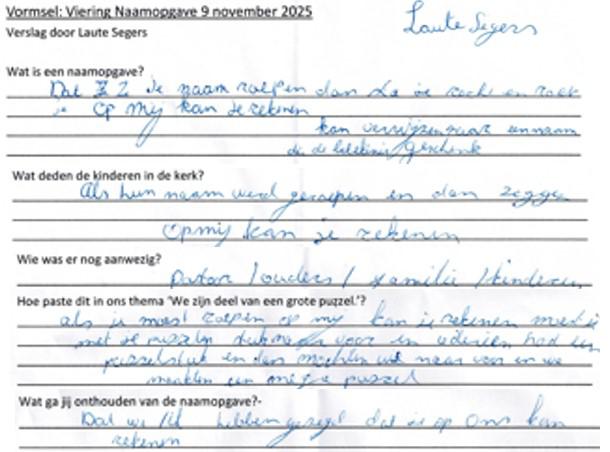 Vormsel: Viering Naamopgave 9 november 2025
Laute Segers
Verslag door Laute Segers
Wat is een naamopgave?
Dat Je naam roepen dan
op mij kan je rekenen
kan verwijzen naar een naam
geschenk
Wat deden de kinderen in de kerk?
Als hun naam werd geroepen en dan zeggen
Op mij kan je rekenen
Wie was er nog aanwezig?
Pastoor / ouders / familie / kinderen
Hoe paste dit in ons thema 'We zijn deel van een grote puzzel.'?
als je moest roepen op mij kan je rekenen moest je
met je puzzelstuk naar voor en iedereen had een
puzzelstuk en dan mochten we naar voor en we
maakten een puzzel
Wat ga jij onthouden van de naamopgave?-
Dat we hebben gezegd dat je op ons kan
rekenen